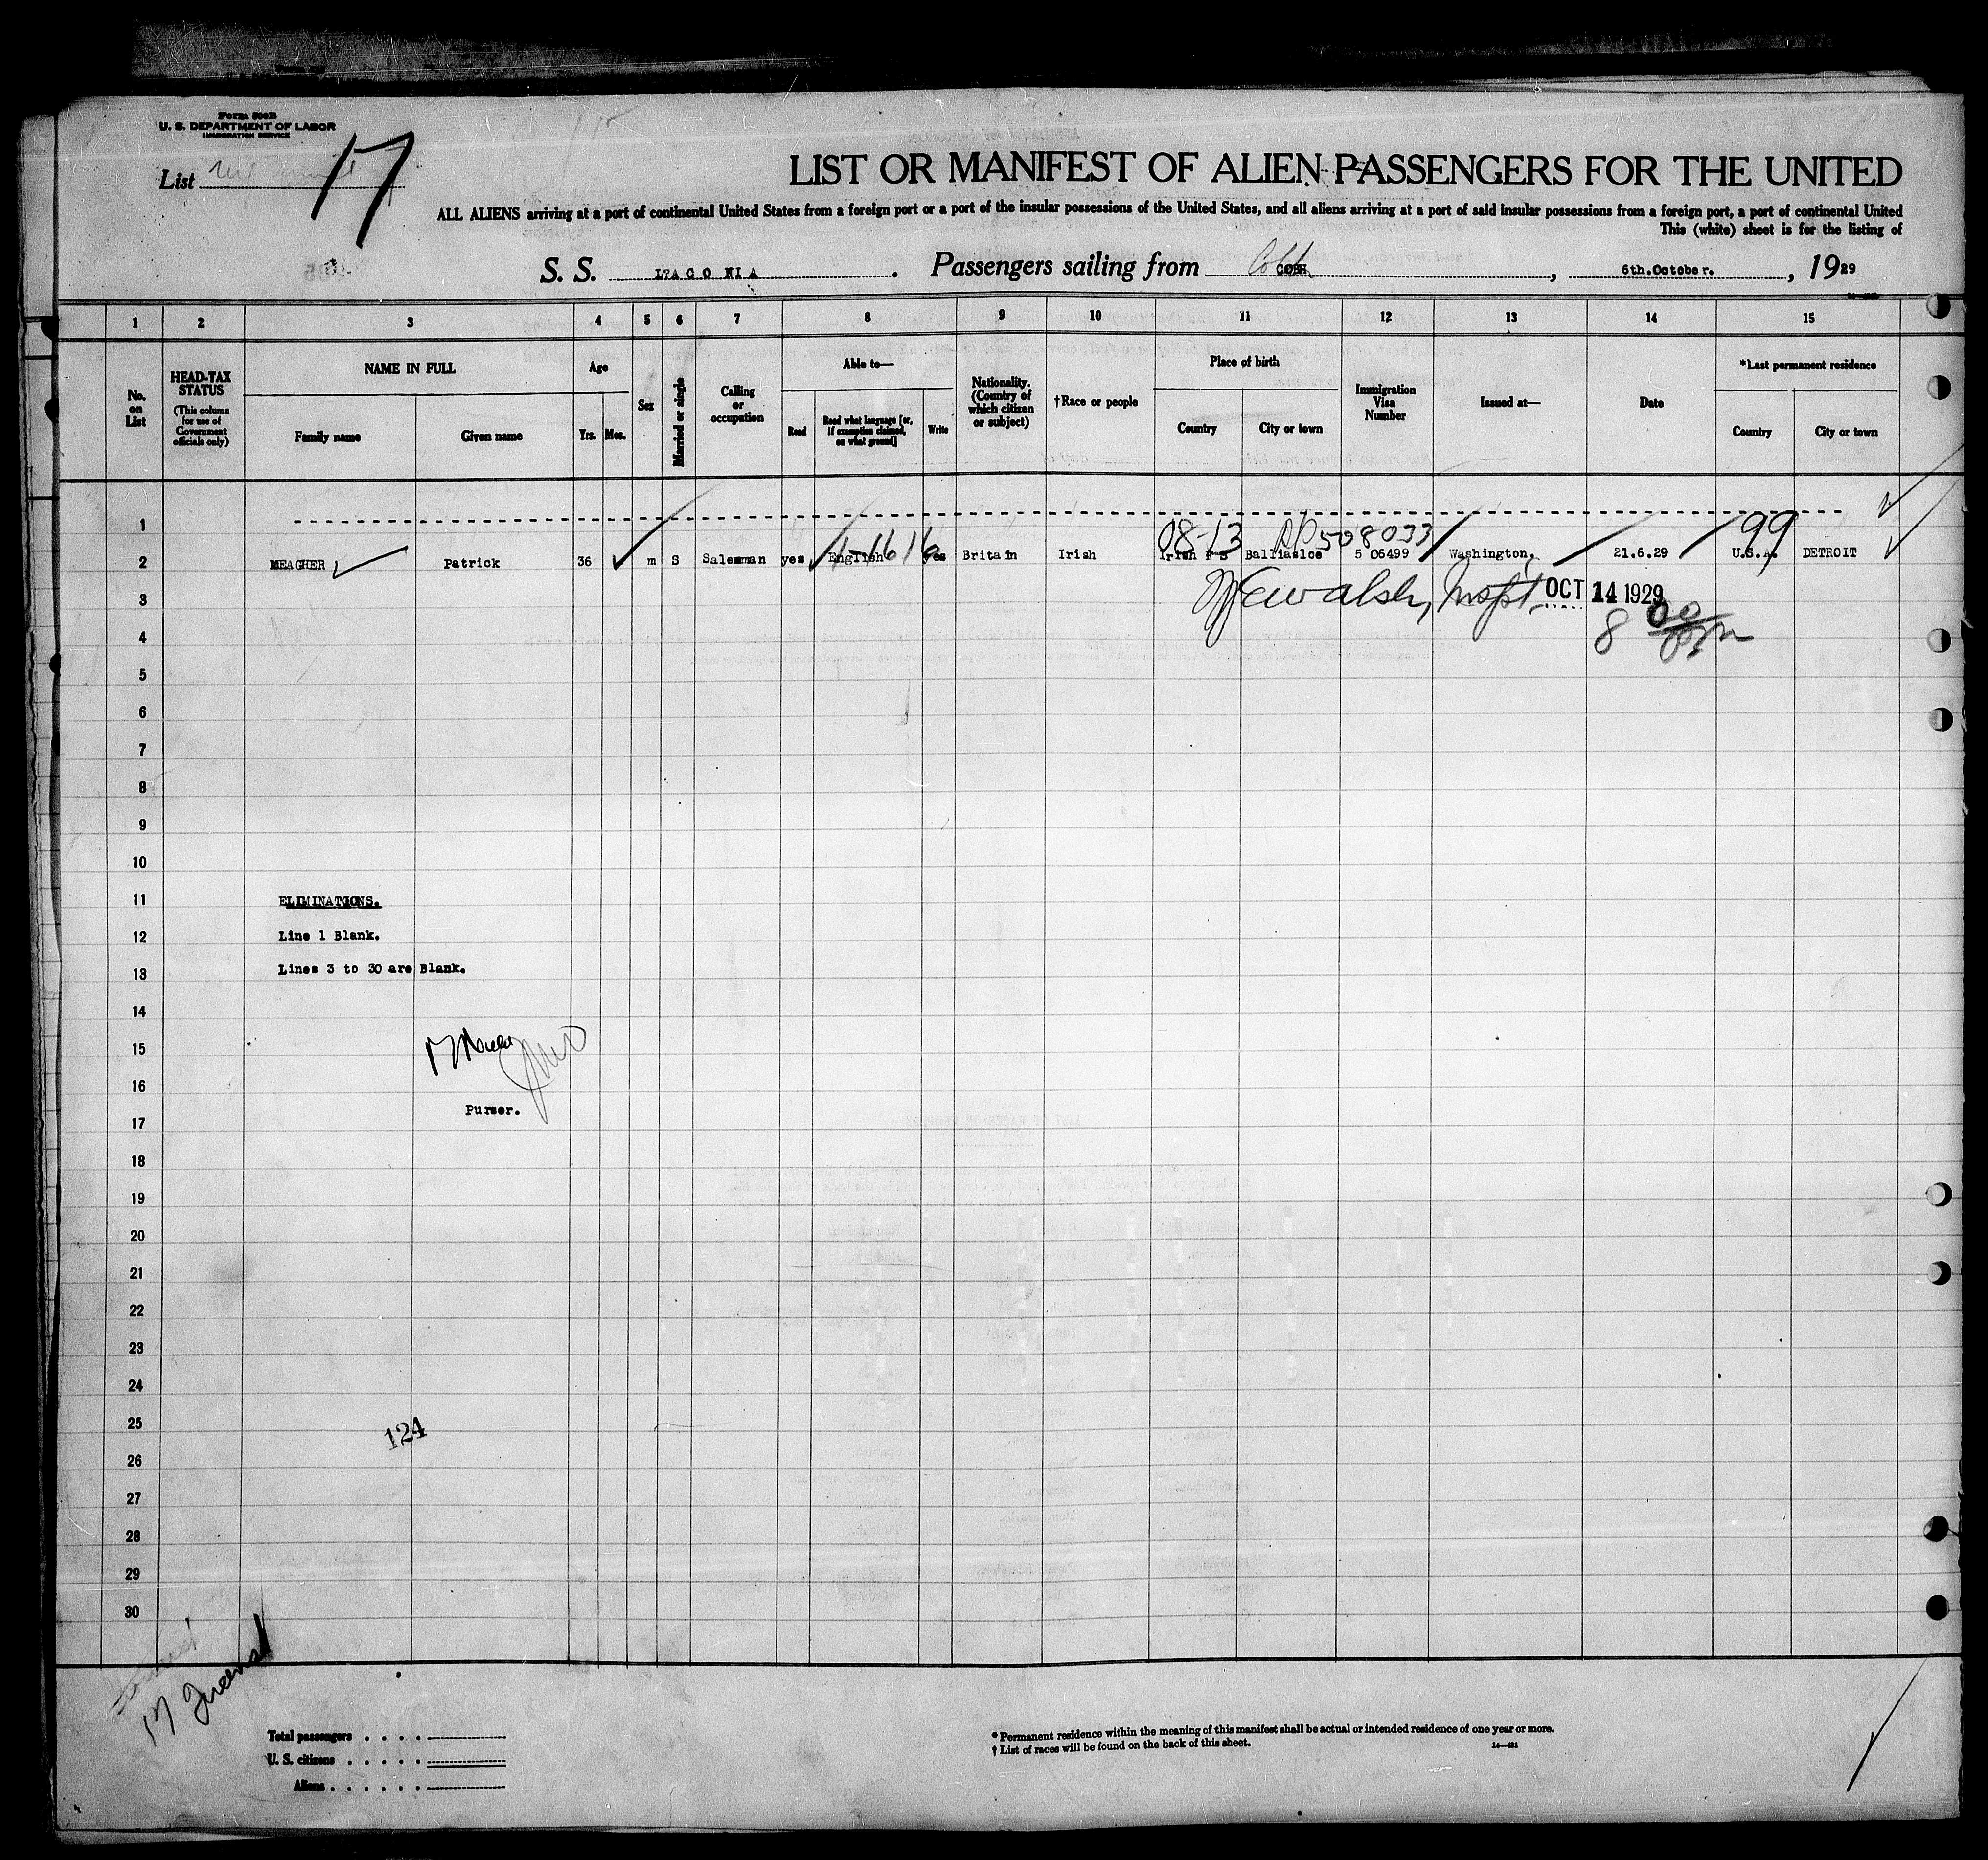 Form 500B
U. S. DEPARTMENT OF LABOR
IMMIGRATION SERVICE
List 17
LIST OR MANIFEST OF ALIEN PASSENGERS FOR THE UNITED
ALL ALIENS arriving at a port of continental United States from a foreign port or a port of the insular possessions of the United States, and all aliens arriving at a port of said insular possessions from a foreign port, a port of continental United
This (white) sheet is for the listing of
S. S. LACONIA. Passengers sailing from Cobh COBH, 6th.October., 1929
1 2 3 4 5 6 7 8 9 10 11 12 13 14 15
No. on List
HEAD-TAX STATUS
(This column for use of Government officials only)
NAME IN FULL
Family name
Given name
Age
Yrs.
Mos.
Sex
Married or single
Calling or occupation
Able to—
Read
Read what language [or, if exemption claimed, on what ground]
Write
Nationality. (Country of which citizen or subject)
†Race or people
Place of birth
Country
City or town
Immigration Visa Number
Issued at—
Date
*Last permanent residence
Country
City or town
1
08-13 RP508033 99
2 MEAGHER Patrick 36 m S Salesman yes, English yes Britain Irish Irish F S Balliasloe 5 06499 Washington, 21.6.29 U.S.A. DETROIT
1-1616
3
Walsh, Inspt. OCT 14 1929
4
8 00
5
6
7
8
9
10
11 ELIMINATIONS.
12 Line 1 Blank.
13 Lines 3 to 30 are Blank.
14
15
16
Purser.
17
18
19
20
21
22
23
24
25
124
26
27
28
29
30
17
Total passengers . . . .
U. S. citizens . . . . .
Aliens . . . . . .
* Permanent residence within the meaning of this manifest shall be actual or intended residence of one year or more.
† List of races will be found on the back of this sheet.